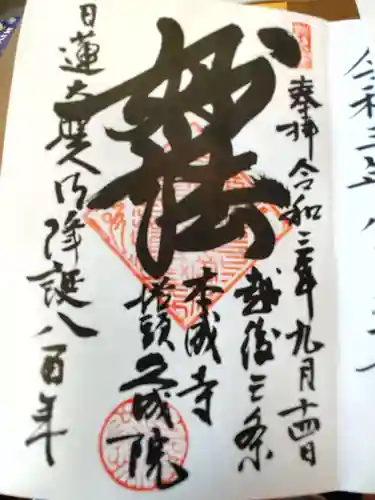 奉拝 令和三年九月十四日
越後三条
本成寺
塔頭 久成院
妙法
日蓮大聖人御降誕八百年
令和三年